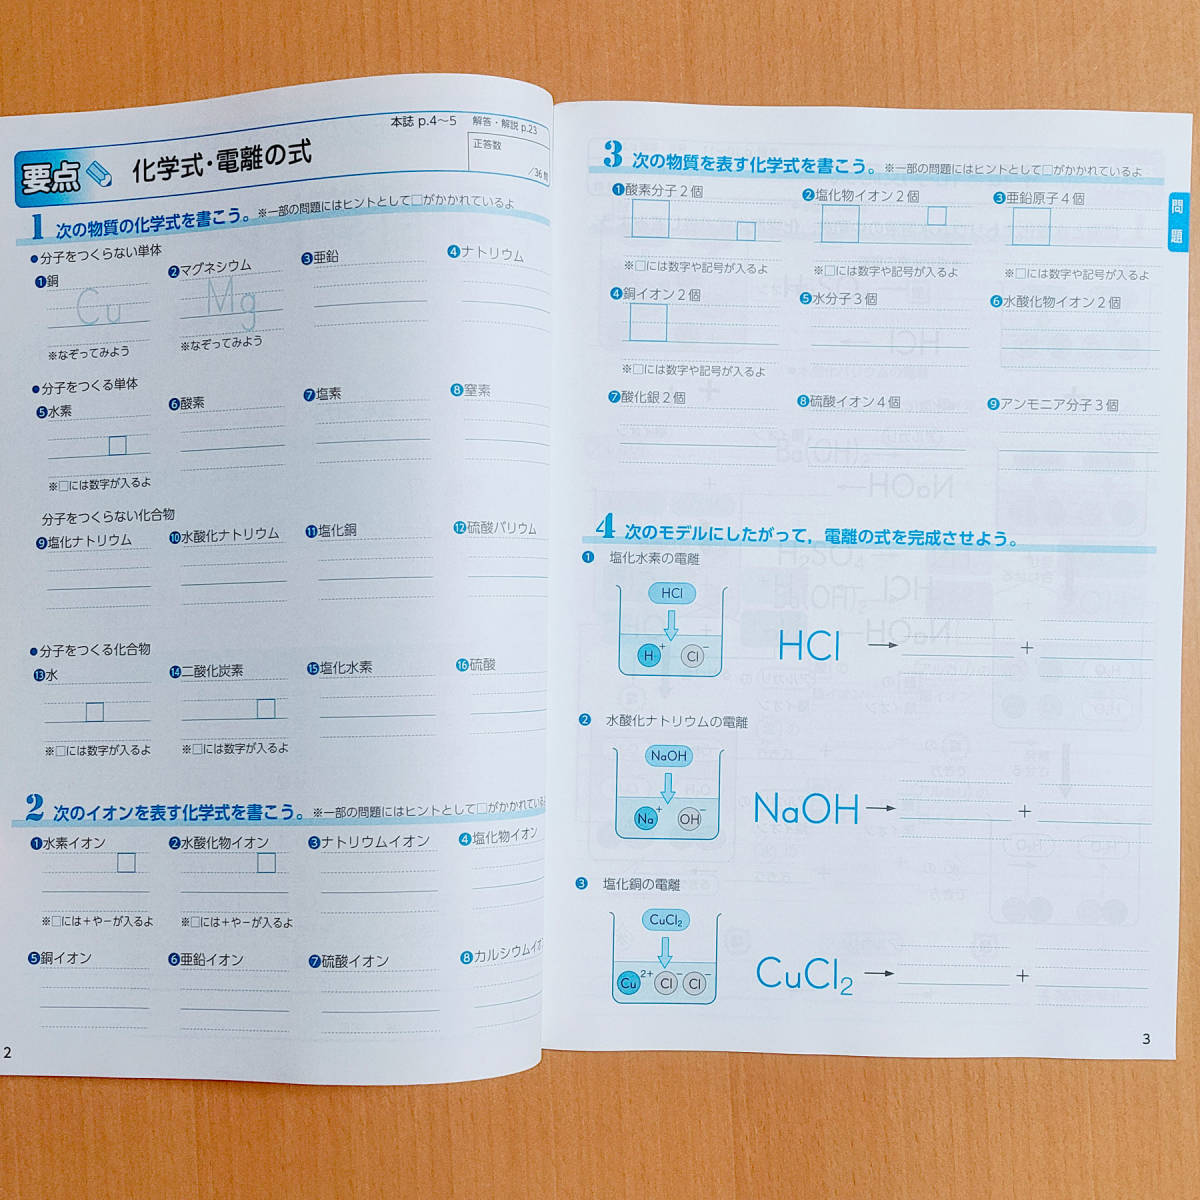 本誌 p.4～5 解答・解説 p.23
要点 化学式・電離の式
正答数
/36問
1 次の物質の化学式を書こう。※一部の問題にはヒントとして□がかかれているよ
●分子をつくらない単体
❶銅 ❷マグネシウム ❸亜鉛 ❹ナトリウム
Cu Mg
※なぞってみよう ※なぞってみよう
●分子をつくる単体
❺水素 ❻酸素 ❼塩素 ❽窒素
※□には数字が入るよ
分子をつくらない化合物
❾塩化ナトリウム ❿水酸化ナトリウム ⓫塩化銅 ⓬硫酸バリウム
●分子をつくる化合物
⓭水 ⓮二酸化炭素 ⓯塩化水素 ⓰硫酸
※□には数字が入るよ ※□には数字が入るよ
2 次のイオンを表す化学式を書こう。※一部の問題にはヒントとして□がかかれている
❶水素イオン ❷水酸化物イオン ❸ナトリウムイオン ❹塩化物イオン
※□には＋や－が入るよ ※□には＋や－が入るよ
❺銅イオン ❻亜鉛イオン ❼硫酸イオン ❽カルシウムイオ
2
3 次の物質を表す化学式を書こう。※一部の問題にはヒントとして□がかかれているよ
問題
❶酸素分子２個 ❷塩化物イオン２個 ❸亜鉛原子４個
※□には数字や記号が入るよ ※□には数字や記号が入るよ ※□には数字や記号が入るよ
❹銅イオン２個 ❺水分子３個 ❻水酸化物イオン２個
※□には数字や記号が入るよ
❼酸化銀２個 ❽硫酸イオン４個 ❾アンモニア分子３個
4 次のモデルにしたがって，電離の式を完成させよう。
❶ 塩化水素の電離
HCl
H⁺ Cl⁻
HCl → ＋
❷ 水酸化ナトリウムの電離
NaOH
Na⁺ OH⁻
NaOH → ＋
❸ 塩化銅の電離
CuCl₂
Cu²⁺ Cl⁻ Cl⁻
CuCl₂ → ＋
3